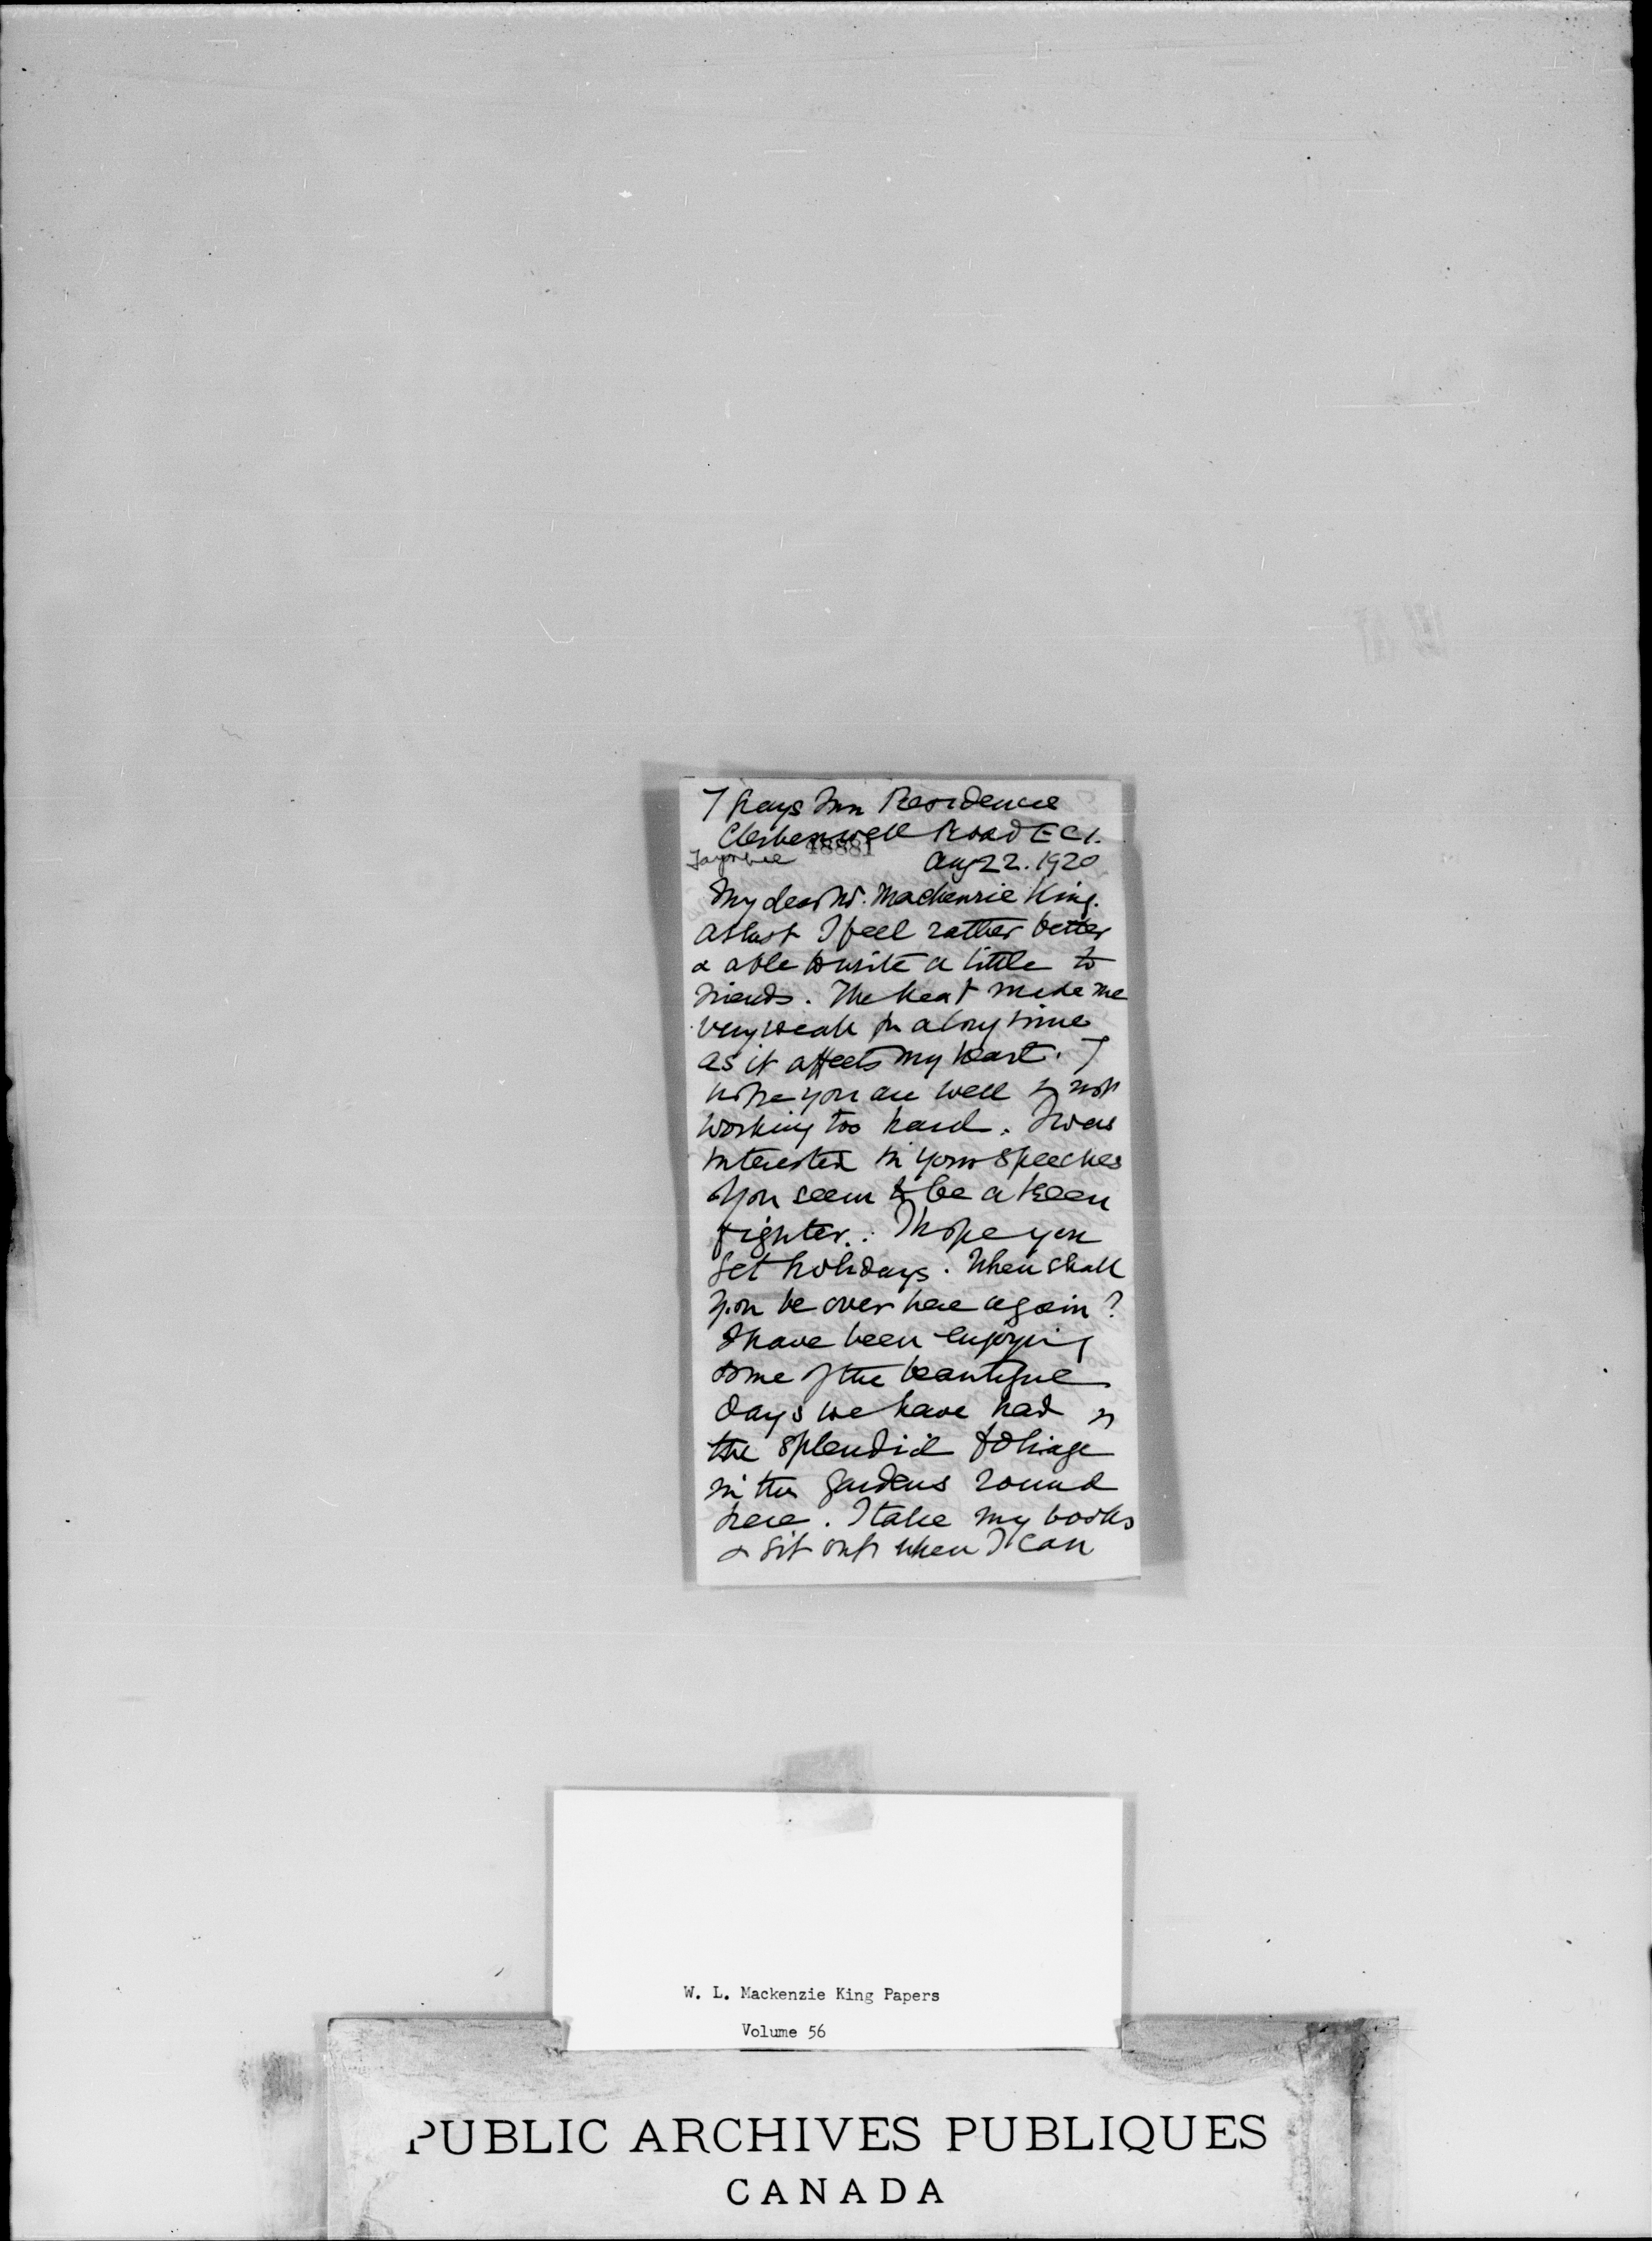 7 Grays Inn Residence
Clerkenwell Road E C 1.
Toynbee 48881 Aug 22. 1920
My dear Mr. Mackenzie King.
At last I feel rather better
& able to write a little to
friends. The heat made me
very weak for a long time
as it affects my heart. I
hope you are well & not
working too hard. I was
interested in your speeches
You seem to be a keen
fighter. I hope you
get holidays. When shall
you be over here again?
I have been enjoying
some of the beautiful
days we have had &
the splendid foliage
in the gardens round
here. I take my books
& sit out when I can
W. L. Mackenzie King Papers
Volume 56
PUBLIC ARCHIVES PUBLIQUES
CANADA